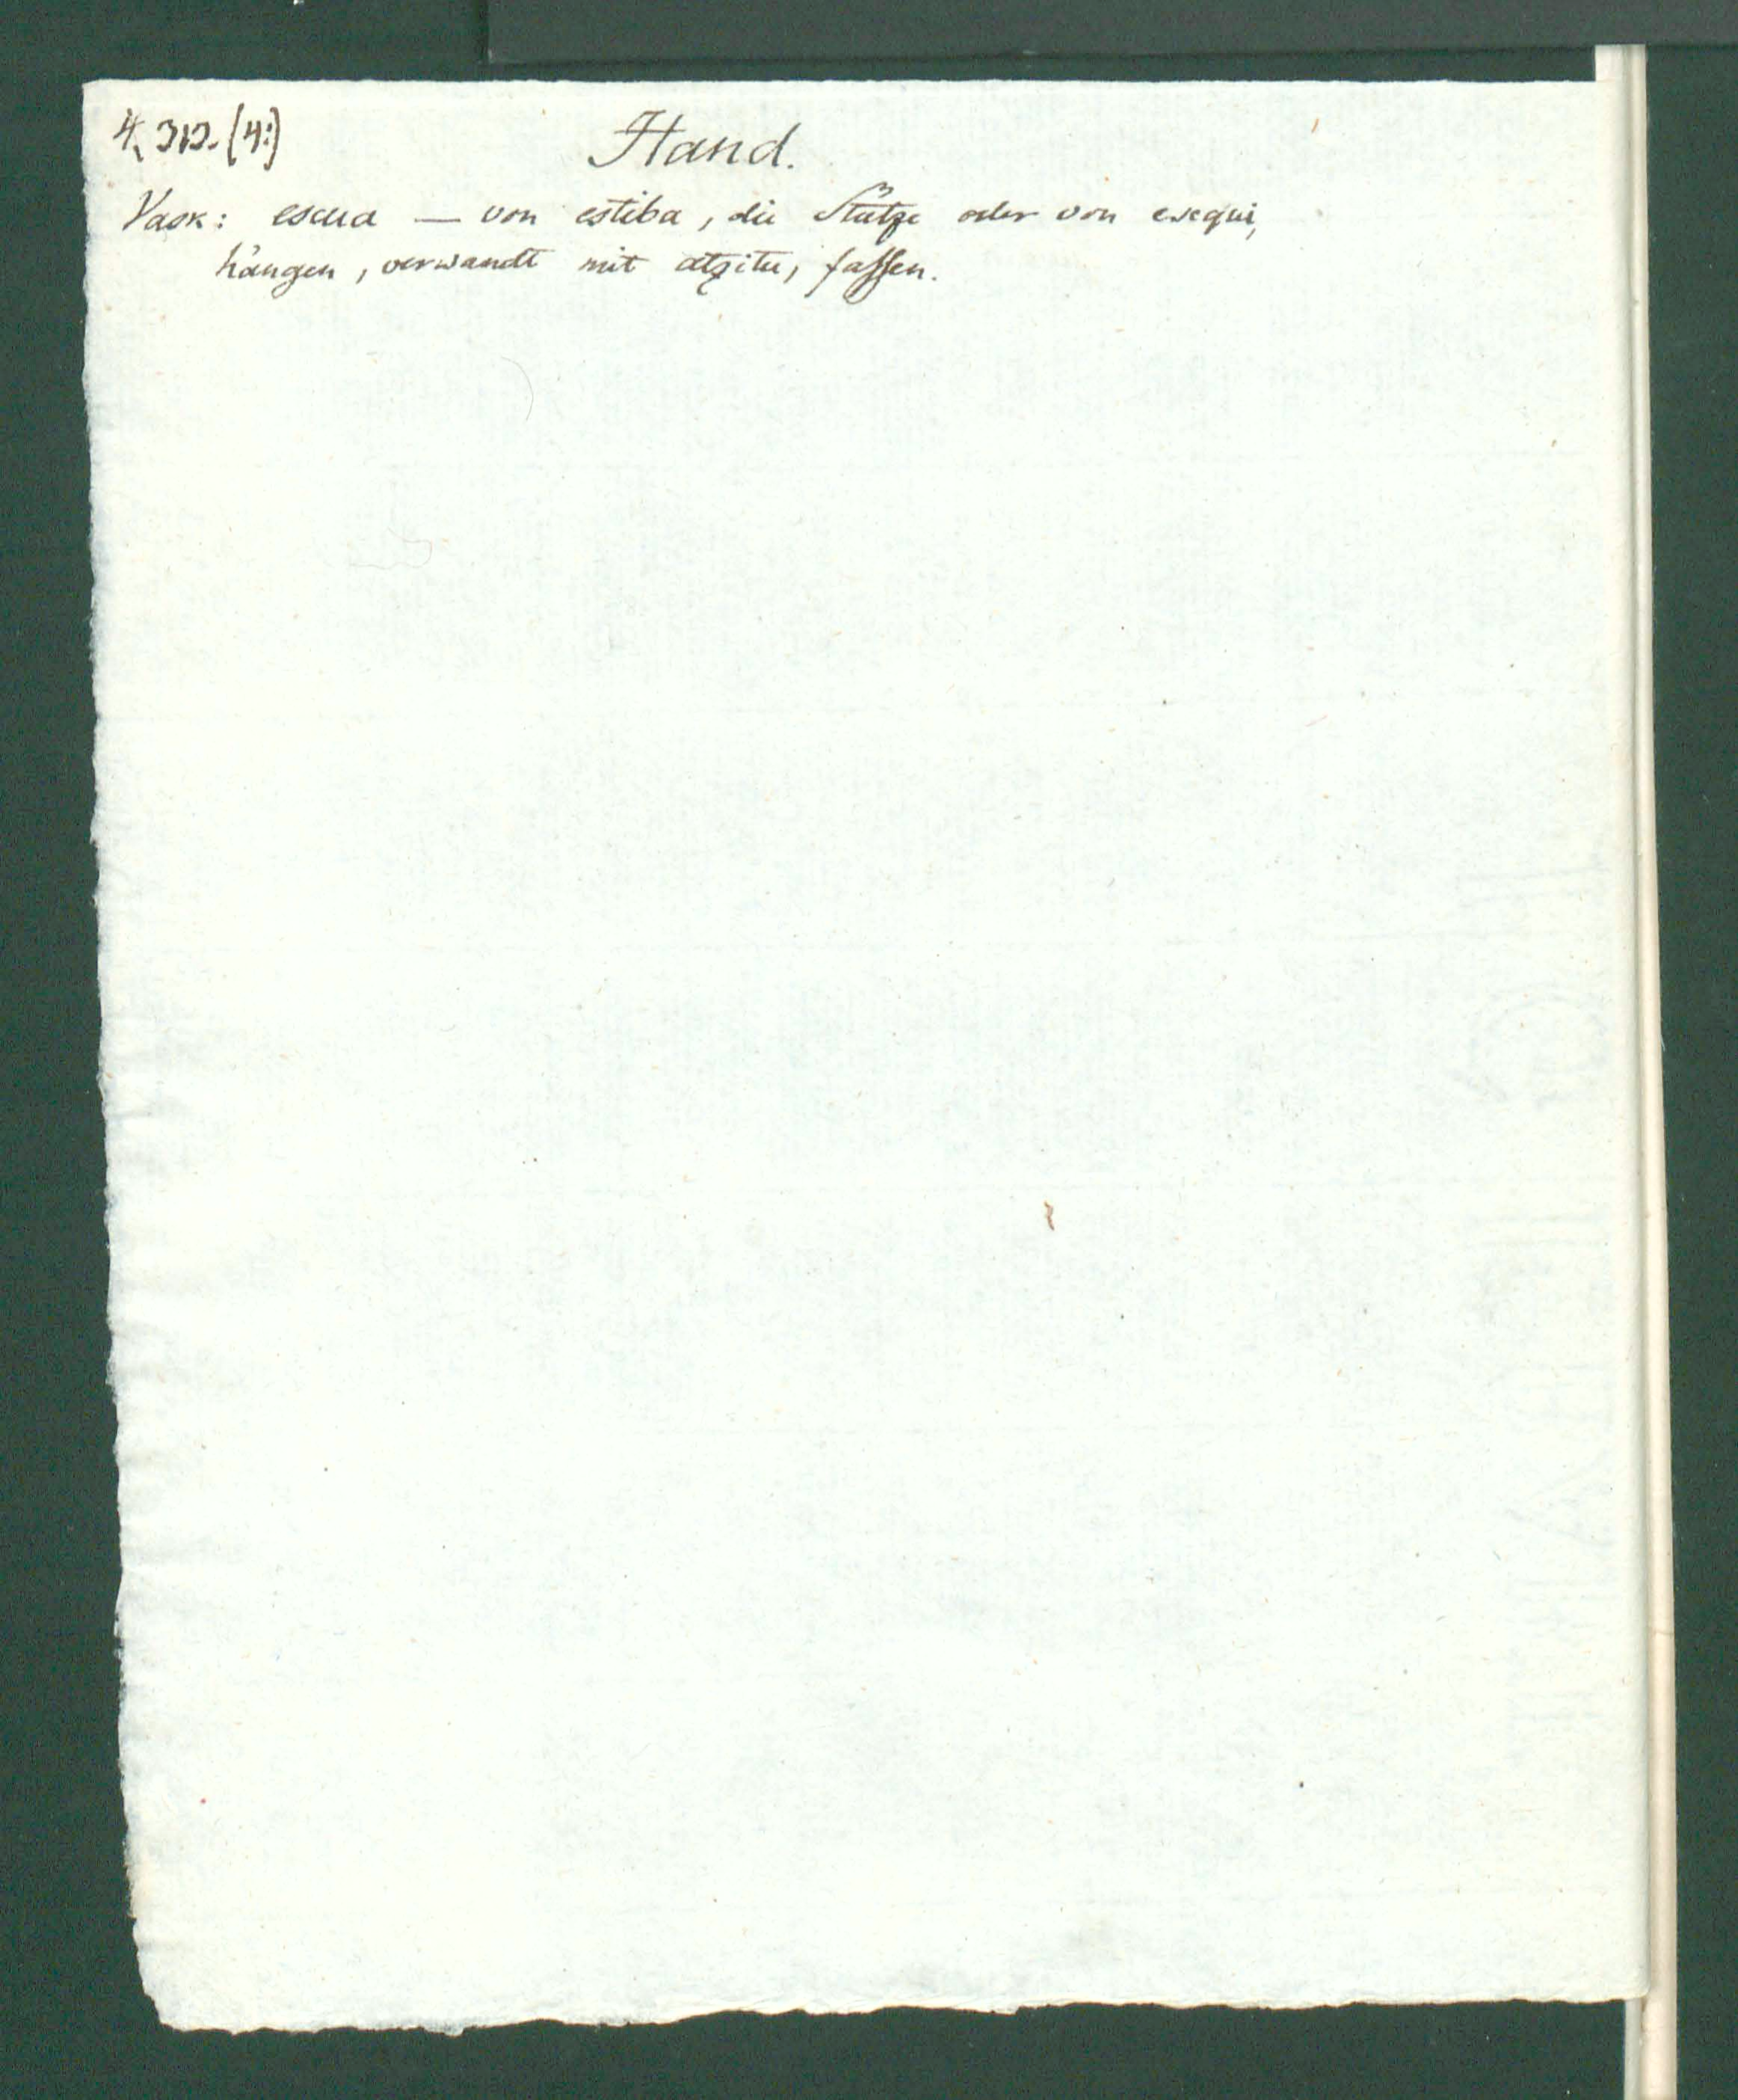 Hand.
Vask: escua — von estiba, die Stütze oder von esequi,
hängen, verwandt mit atzitu, fassen.